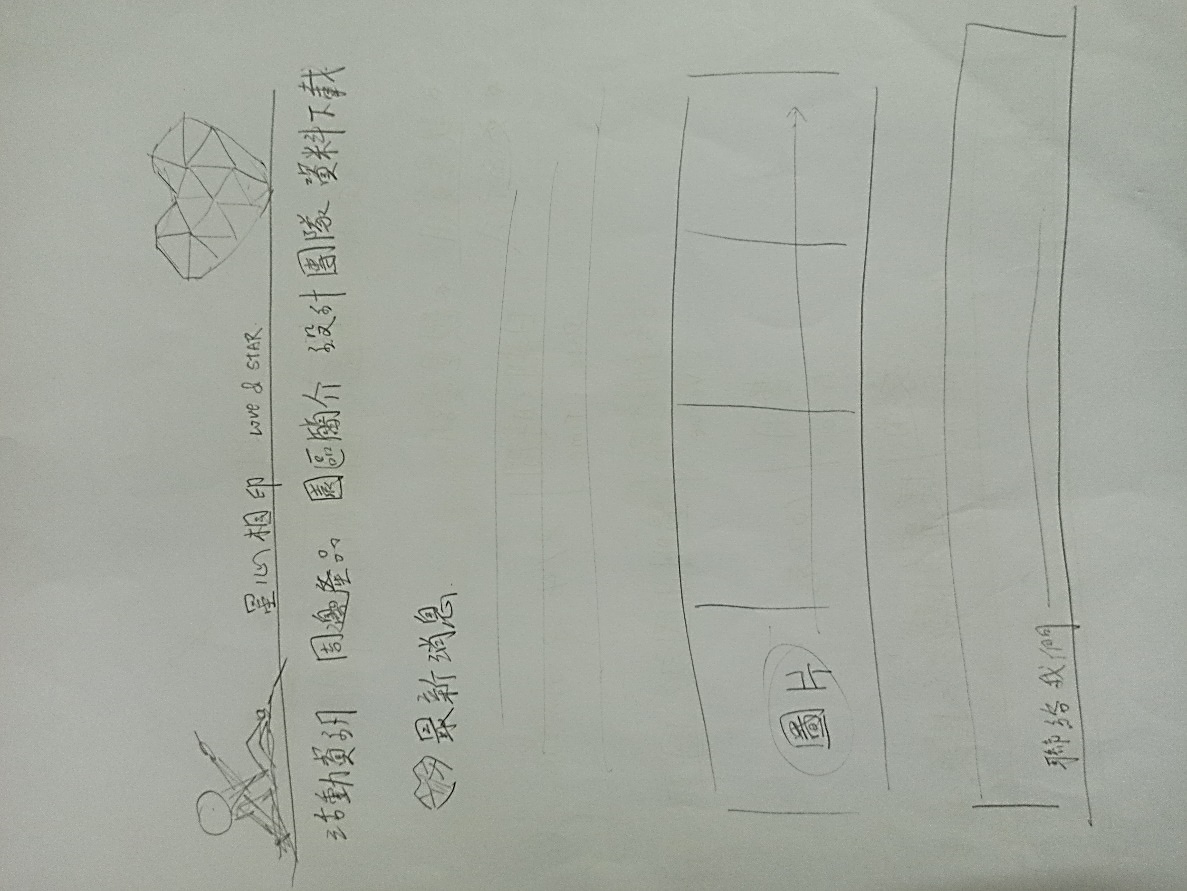 星心相印 Love & STAR
活動資訊 周邊產品 園區簡介 設計團隊 資料下載
最新消息
圖片
聯絡我們